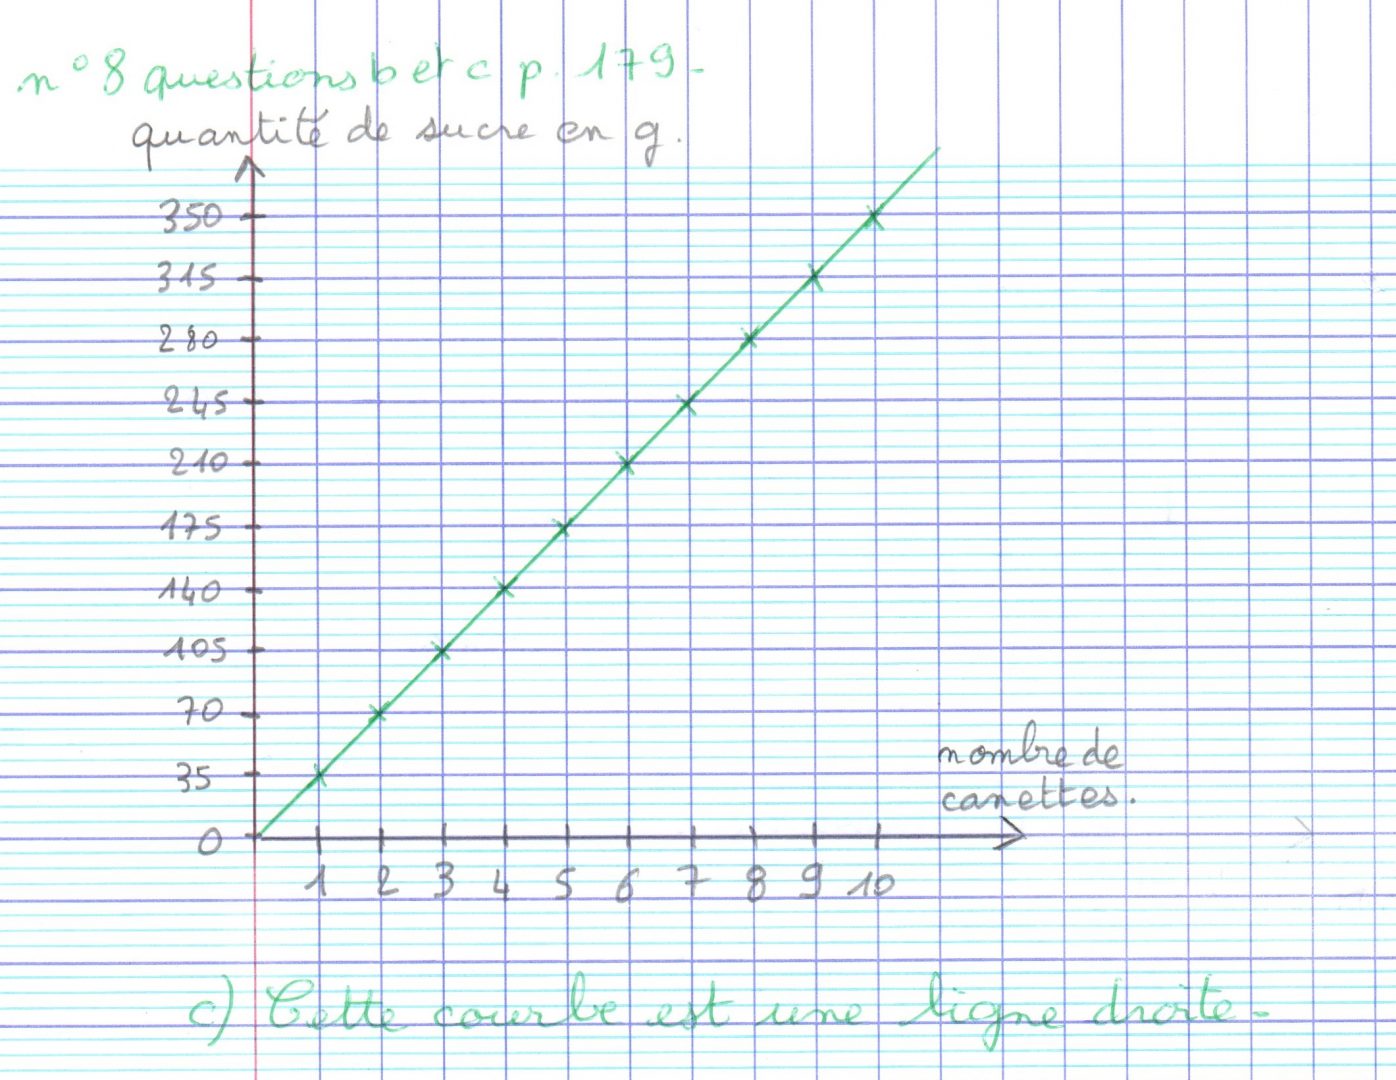 n° 8 questions b et c p. 179.
quantité de sucre en g.
350
315
280
245
210
175
140
105
70
35
0
nombre de
canettes.
1 2 3 4 5 6 7 8 9 10
c) Cette courbe est une ligne droite.